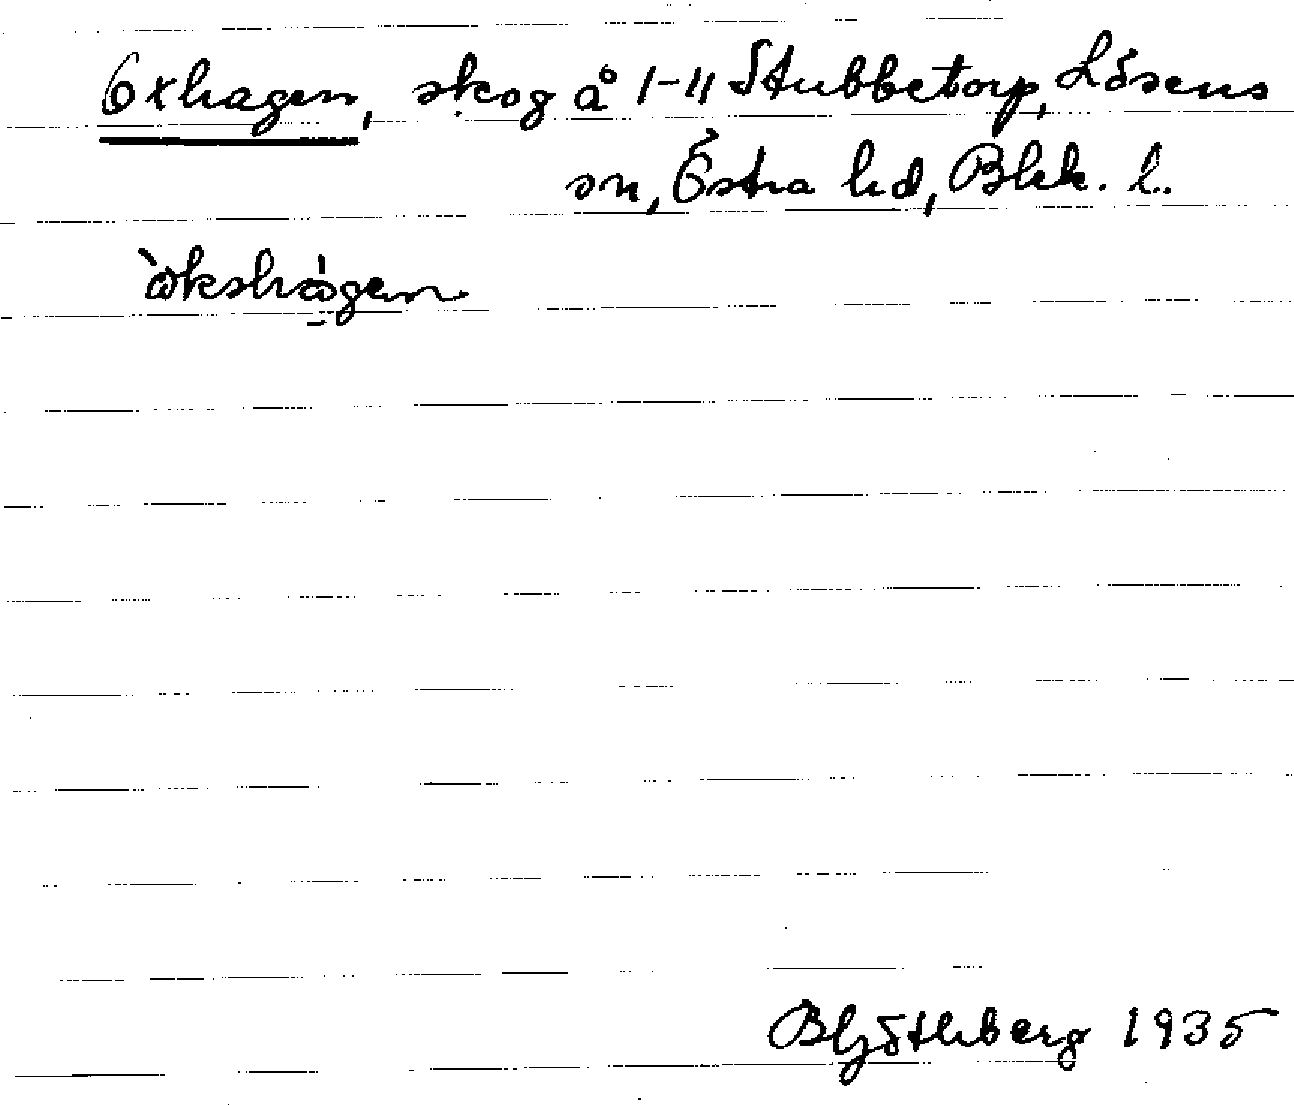 Oxhagen, skog å 1-11 Stubbetorp, Lösens
sn, Östra hd, Blek. l.
òkshágen